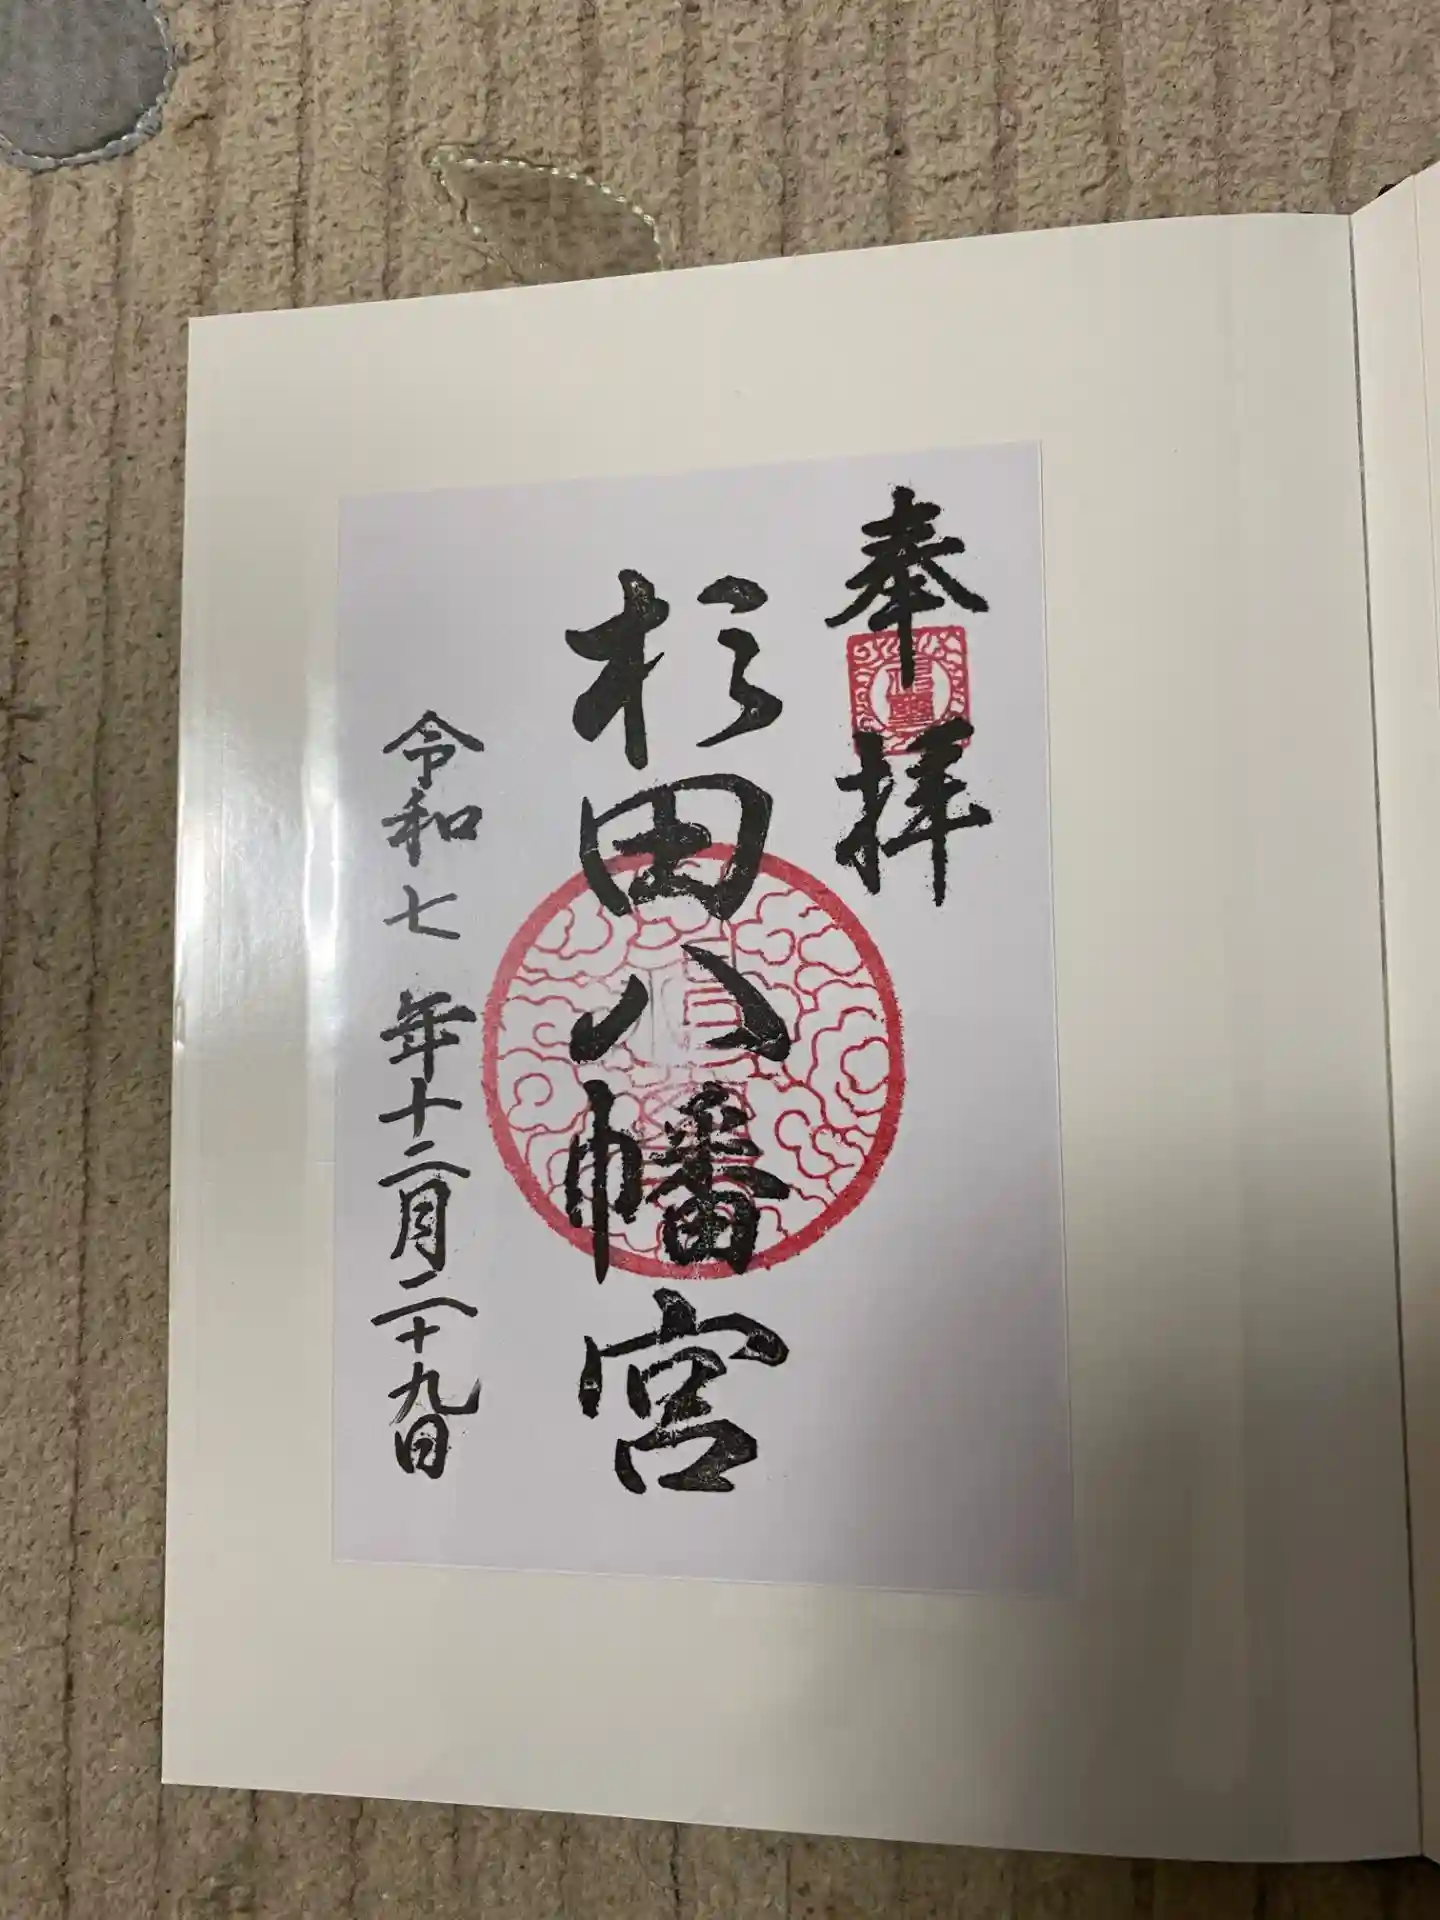 奉拝
杉田八幡宮
令和七年十二月二十九日